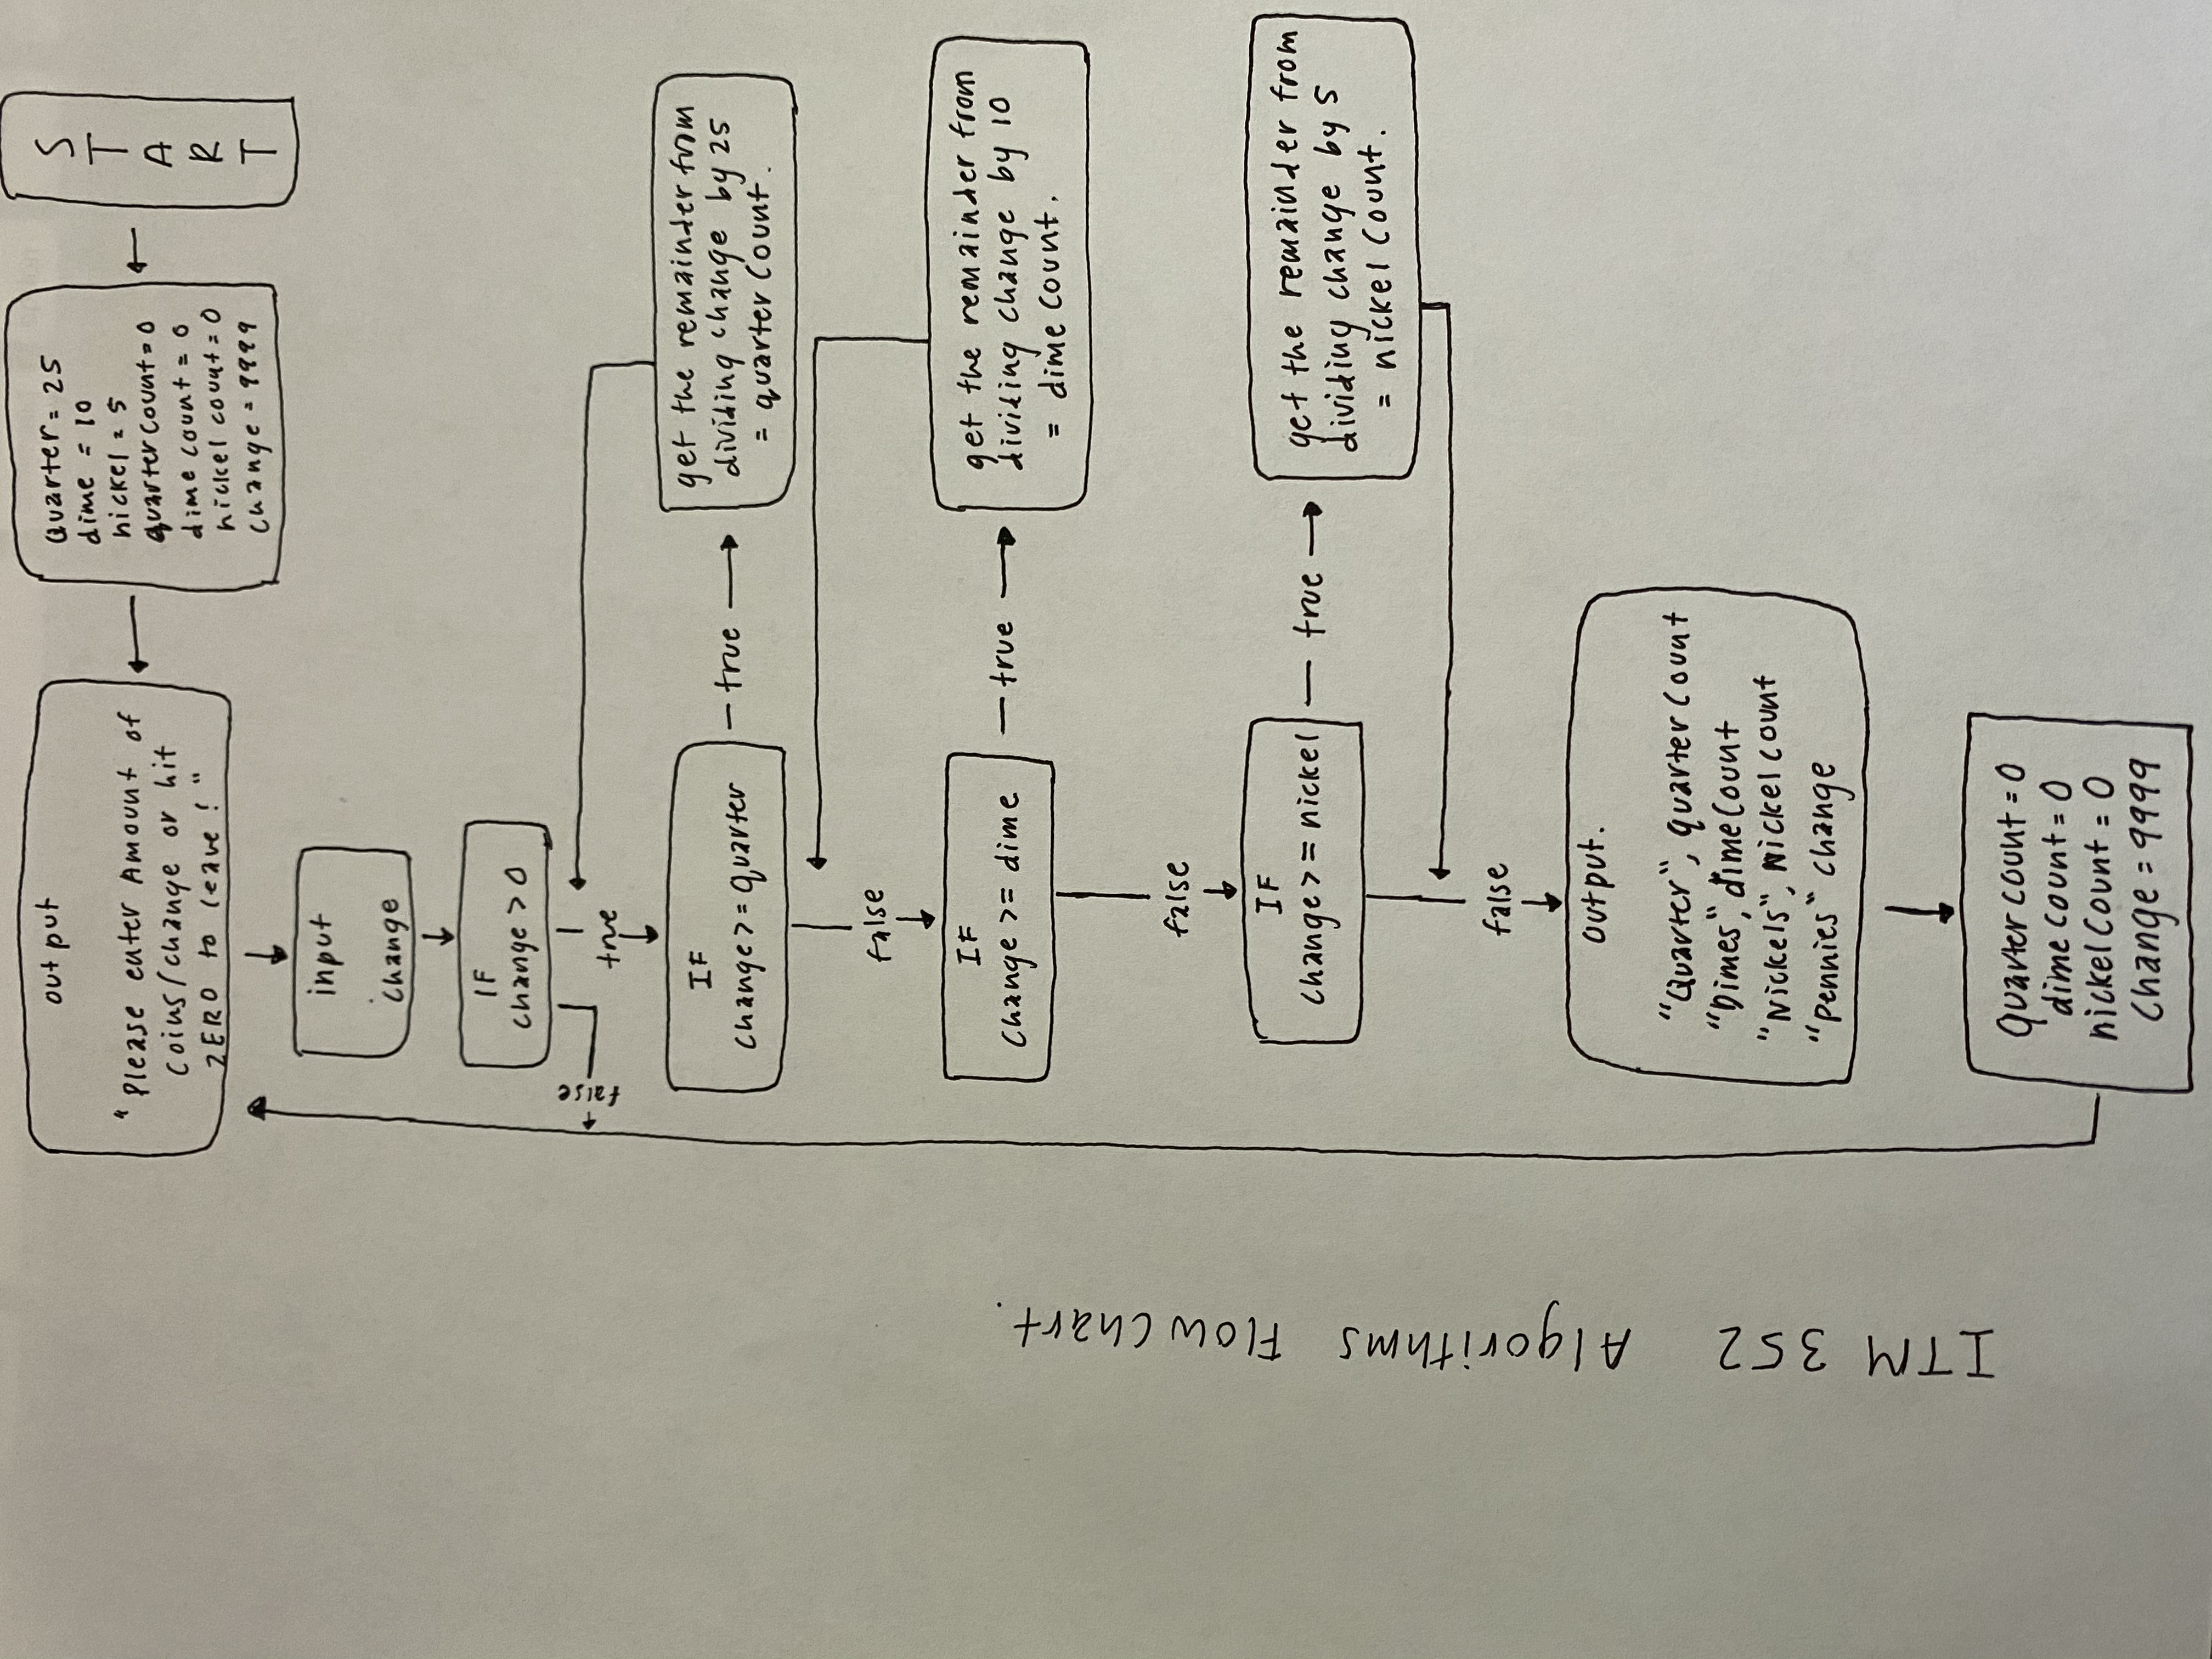 START
Quarter = 25
dime = 10
nickel = 5
quarter count = 0
dime count = 0
nickel count = 0
change = 9999
output
"Please enter Amount of
coins/change or hit
ZERO to leave! "
input
change
IF
change > 0
false
true
IF
change >= quarter
true
get the remainder from
dividing change by 25
= quarter count.
false
IF
change >= dime
true
get the remainder from
dividing change by 10
= dime count.
false
IF
change >= nickel
true
get the remainder from
dividing change by 5
= nickel count.
false
output.
"Quarter", quarter count
"Dimes", dime count
"Nickels", Nickel count
"Pennies" change
Quarter count = 0
dime count = 0
nickel count = 0
Change = 9999
ITM 352 Algorithms Flow Chart.